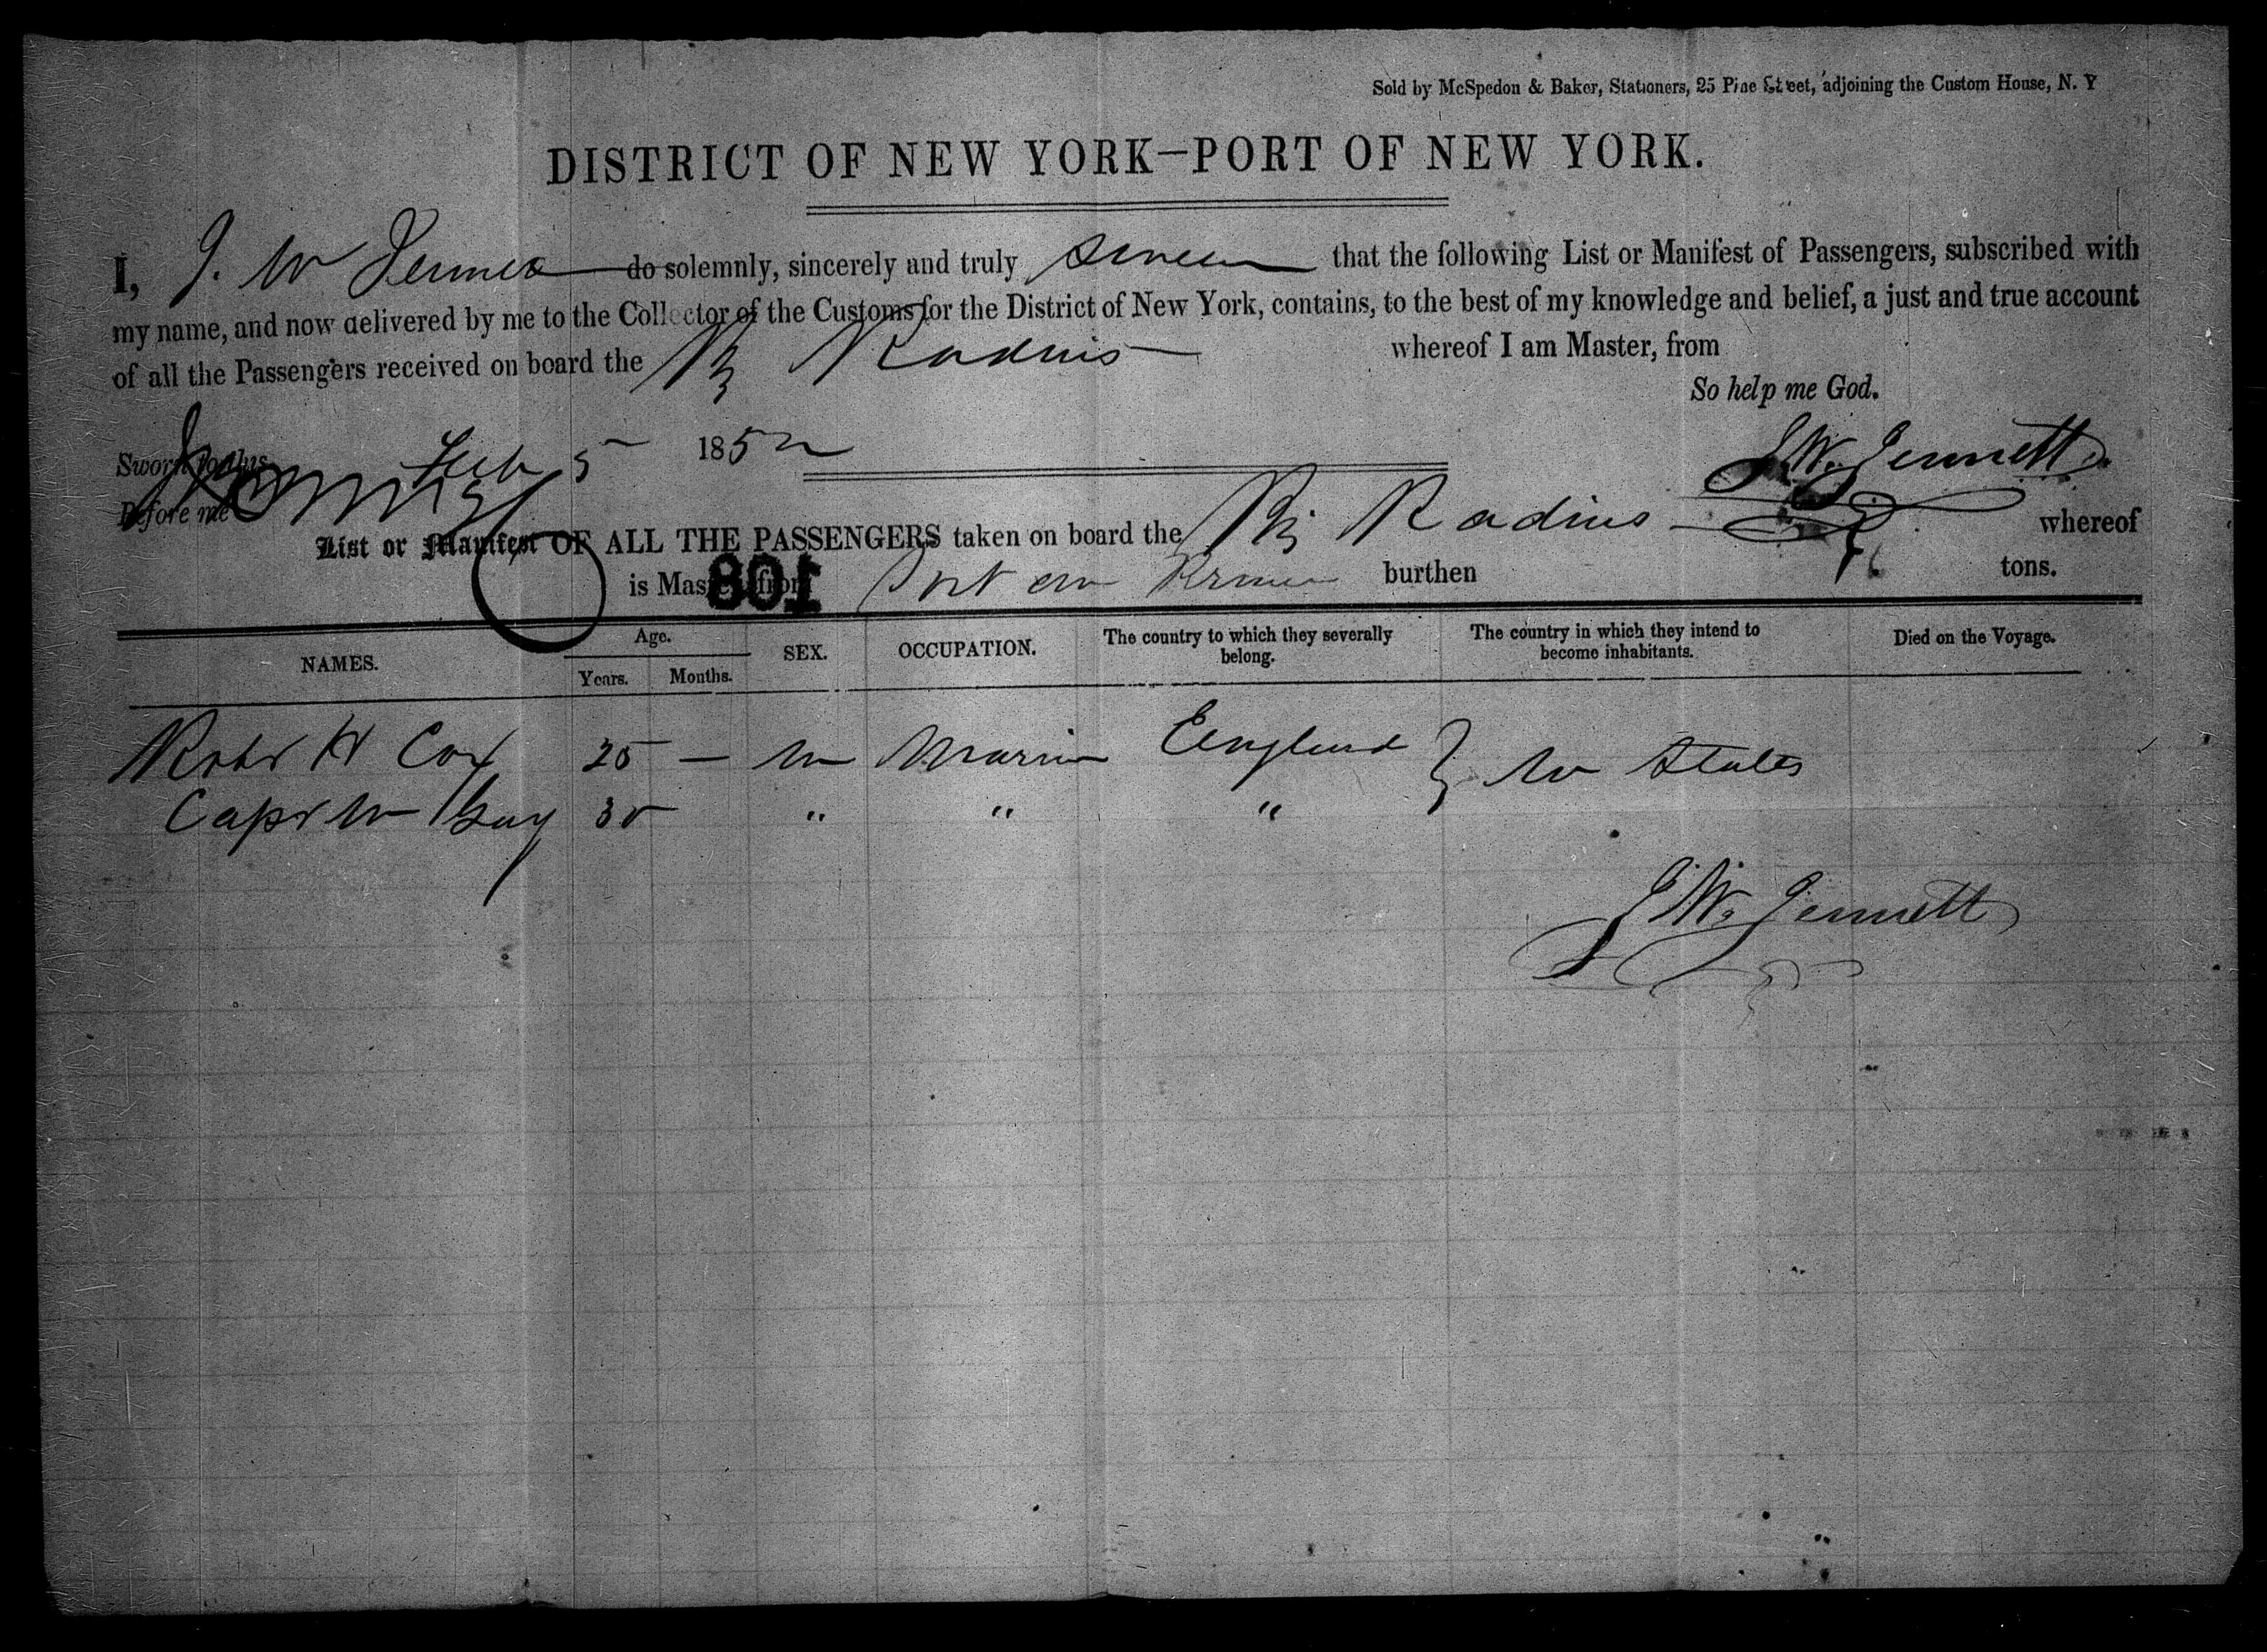 Sold by McSpedon & Baker, Stationers, 25 Pine Street, adjoining the Custom House, N. Y
DISTRICT OF NEW YORK—PORT OF NEW YORK.
I, J. W do solemnly, sincerely and truly swear that the following List or Manifest of Passengers, subscribed with
my name, and now delivered by me to the Collector of the Customs for the District of New York, contains, to the best of my knowledge and belief, a just and true account
of all the Passengers received on board the Radius whereof I am Master, from
So help me God.
Sworn to this Feb 5 1852
J W. Jennett
Before me
List or Manifest OF ALL THE PASSENGERS taken on board the Radius whereof
is Master, from Port au burthen tons.
801
NAMES. Age. SEX. OCCUPATION. The country to which they severally belong. The country in which they intend to become inhabitants. Died on the Voyage.
Years. Months.
Robt H Cox 25 — m Marine England } U States
Capt W Guy 30 " " "
J W. Jennett